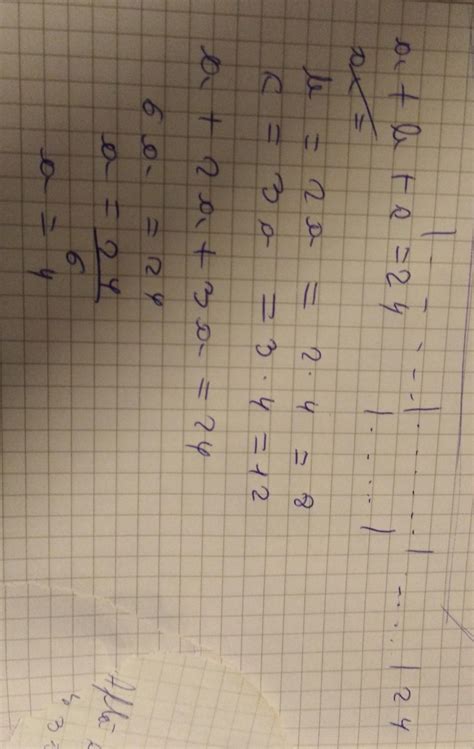 a + b + c = 24
a =
b = 2a = 2 · 4 = 8
c = 3a = 3 · 4 = 12
a + 2a + 3a = 24
6a = 24
a = 24
6
a = 4
24